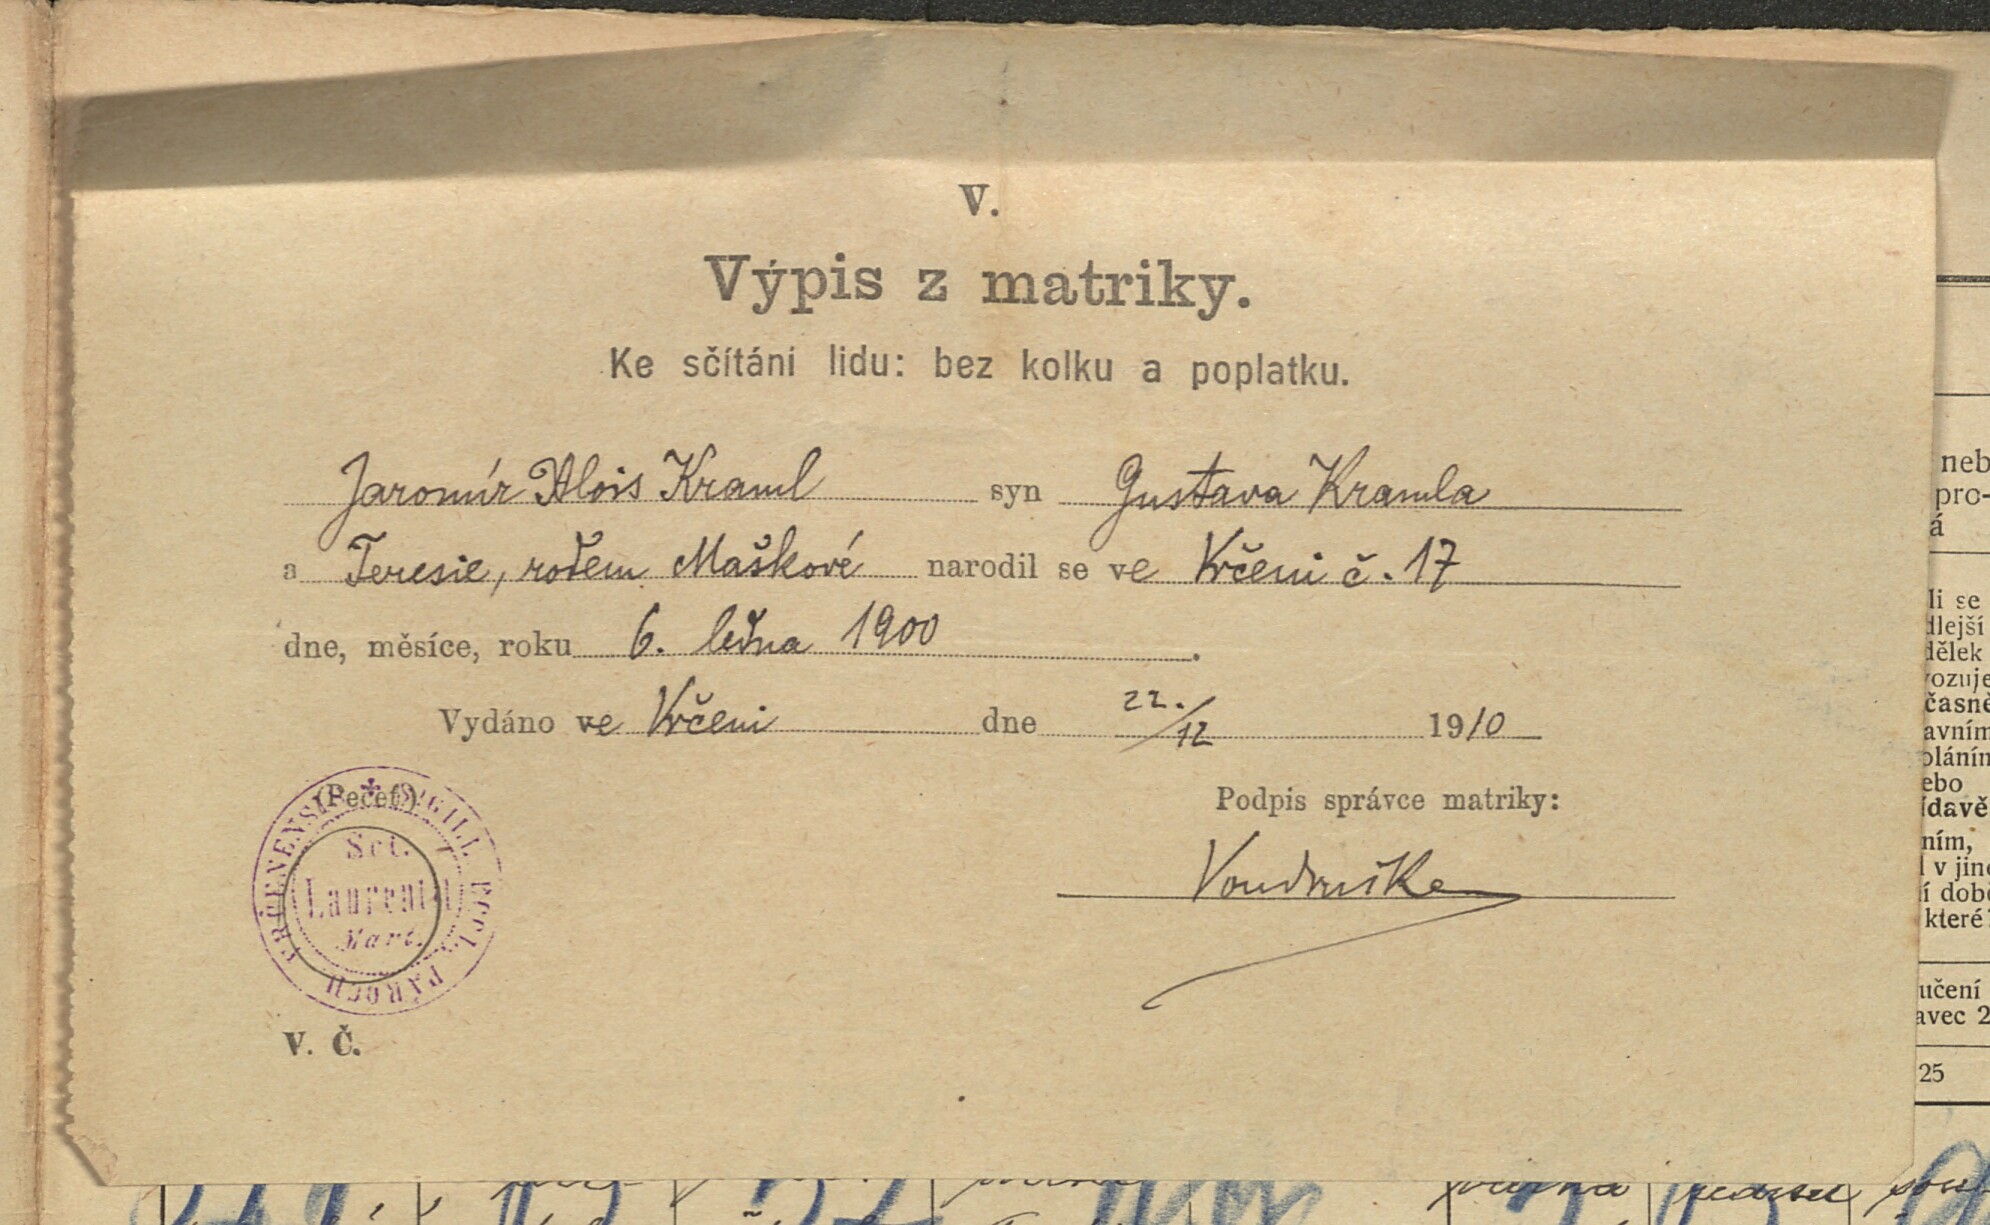 V.
Výpis z matriky.
Ke sčítání lidu: bez kolku a poplatku.
Jaromír Alois Kraml syn Gustava Kramla
a Teresie, rodem Maškové narodil se ve Vrčeni č. 17
dne, měsíce, roku 6. ledna 1900.
Vydáno ve Vrčeni dne 22./12 1910
(Pečeť)
Podpis správce matriky:
Voudruška
SIGILL. ECCL. PAROCH
Sct.
Laurentii
Mart.
V. Č.
neb
pro-
á
li se
dlejší
dělek
vozuje
časně
avním
oláním
ebo
ním,
v jiné
době
které
učení
avec 2
25